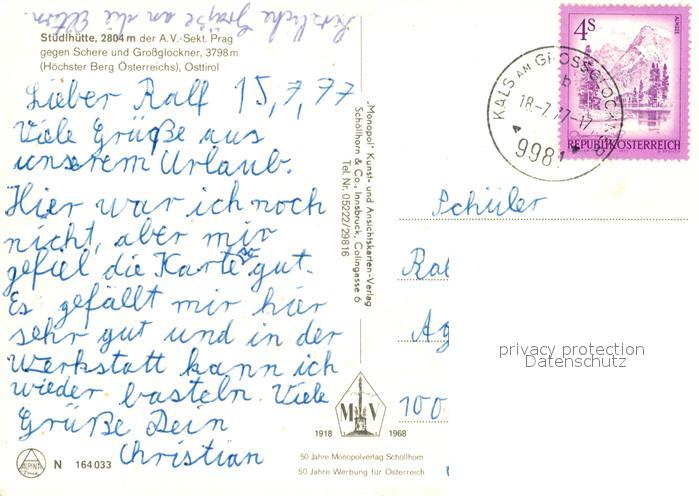 Herzliche Grüße an die Eltern.
Stüdlhütte, 2804 m der A.V.-Sekt. Prag
gegen Schere und Großglockner, 3798 m
(Höchster Berg Österreichs), Osttirol
Lieber Ralf 15,7,77
Viele Grüße aus
unserem Urlaub.
Hier war ich noch
nicht, aber mir
gefiel die Karte so gut.
Es gefällt mir hier
sehr gut und in der
Werkstatt kann ich
wieder basteln. Viele
Grüße Dein
Christian
ALPINA
N 164 033
„Monopol" Kunst- und Ansichtskarten-Verlag
Schöllhorn & Co., Innsbruck, Colingasse 6
Tel. Nr. 05222/29816
M V
1918 1968
50 Jahre Monopolverlag Schöllhorn
50 Jahre Werbung für Österreich
4S
ALMSEE
REPUBLIK ÖSTERREICH
KALS AM GROSSGLOCKNER
b
18-7.77-17
9981
Schüler
Ral
Ag
100
privacy protection
Datenschutz